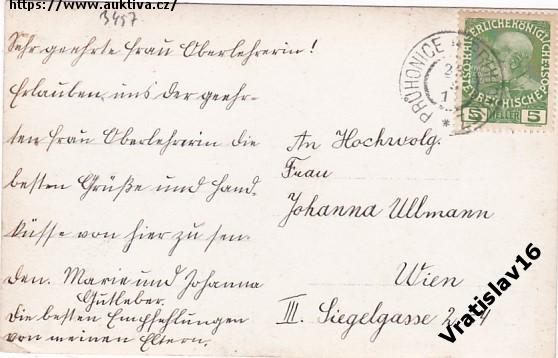 https://www.auktiva.cz/
3457
Sehr geehrte Frau Oberlehrerin!
Erlauben uns der geehr-
ten Frau Oberlehrerin die
besten Grüße und Hand-
küsse von hier zu sen-
den. Marie und Johanna
Gutleber.
Die besten Empfehlungen
von meinen Eltern.
PRŮHONICE
5 HELLER 5
An Hochwolg.
Frau
Johanna Ullmann
Wien
III. Siegelgasse 2
Vratislav16